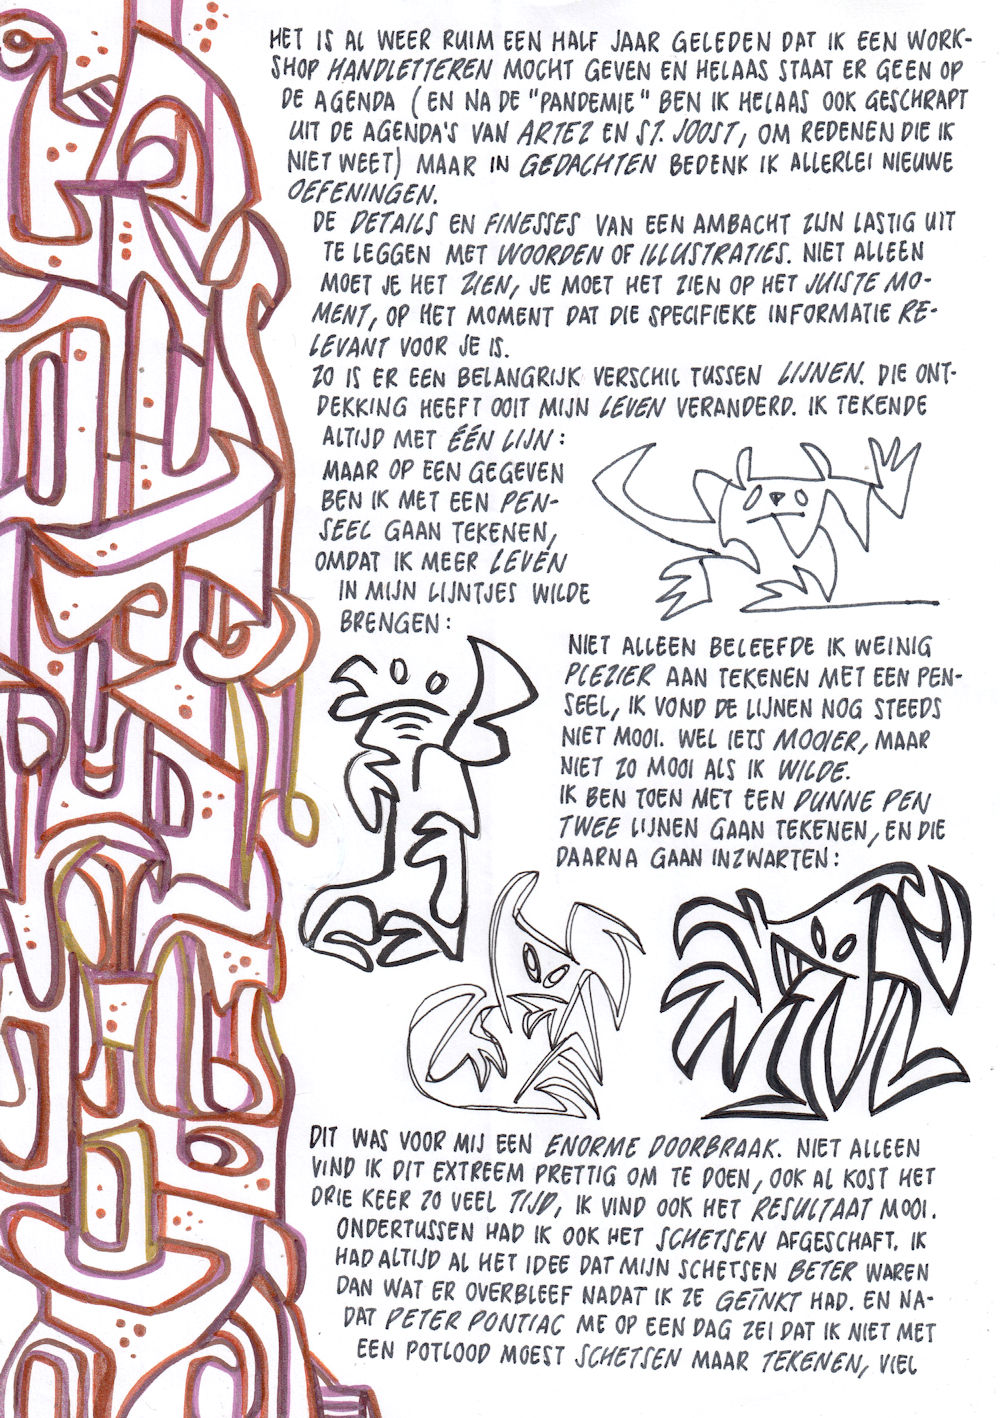 HET IS AL WEER RUIM EEN HALF JAAR GELEDEN DAT IK EEN WORK-
SHOP HANDLETTEREN MOCHT GEVEN EN HELAAS STAAT ER GEEN OP
DE AGENDA (EN NA DE "PANDEMIE" BEN IK HELAAS OOK GESCHRAPT
UIT DE AGENDA'S VAN ARTEZ EN ST. JOOST, OM REDENEN DIE IK
NIET WEET) MAAR IN GEDACHTEN BEDENK IK ALLERLEI NIEUWE
OEFENINGEN.
DE DETAILS EN FINESSES VAN EEN AMBACHT ZIJN LASTIG UIT
TE LEGGEN MET WOORDEN OF ILLUSTRATIES. NIET ALLEEN
MOET JE HET ZIEN, JE MOET HET ZIEN OP HET JUISTE MO-
MENT, OP HET MOMENT DAT DIE SPECIFIEKE INFORMATIE RE-
LEVANT VOOR JE IS.
ZO IS ER EEN BELANGRIJK VERSCHIL TUSSEN LIJNEN. DIE ONT-
DEKKING HEEFT OOIT MIJN LEVEN VERANDERD. IK TEKENDE
ALTIJD MET ÉÉN LIJN:
MAAR OP EEN GEGEVEN
BEN IK MET EEN PEN-
SEEL GAAN TEKENEN,
OMDAT IK MEER LEVEN
IN MIJN LIJNTJES WILDE
BRENGEN:
NIET ALLEEN BELEEFDE IK WEINIG
PLEZIER AAN TEKENEN MET EEN PEN-
SEEL, IK VOND DE LIJNEN NOG STEEDS
NIET MOOI. WEL IETS MOOIER, MAAR
NIET ZO MOOI ALS IK WILDE.
IK BEN TOEN MET EEN DUNNE PEN
TWEE LIJNEN GAAN TEKENEN, EN DIE
DAARNA GAAN INZWARTEN:
DIT WAS VOOR MIJ EEN ENORME DOORBRAAK. NIET ALLEEN
VIND IK DIT EXTREEM PRETTIG OM TE DOEN, OOK AL KOST HET
DRIE KEER ZO VEEL TIJD, IK VIND OOK HET RESULTAAT MOOI.
ONDERTUSSEN HAD IK OOK HET SCHETSEN AFGESCHAFT. IK
HAD ALTIJD AL HET IDEE DAT MIJN SCHETSEN BETER WAREN
DAN WAT ER OVERBLEEF NADAT IK ZE GEÏNKT HAD. EN NA-
DAT PETER PONTIAC ME OP EEN DAG ZEI DAT IK NIET MET
EEN POTLOOD MOEST SCHETSEN MAAR TEKENEN, VIEL